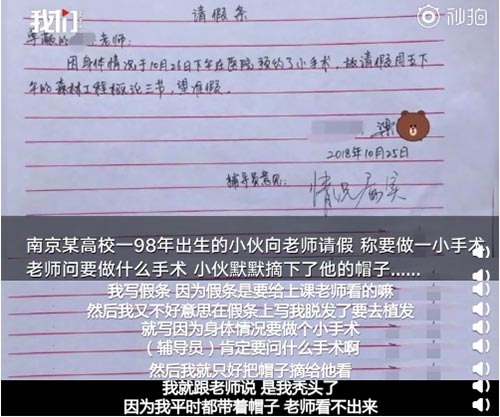 我们
秒拍
请假条
尊敬的 老师:
因身体情况于10月26日下午在医院预约了小手术,故请假周五下
午的森林工程概论三节,望准假。
2018年10月25日
辅导员意见:
情况属实
南京某高校一98年出生的小伙向老师请假 称要做一小手术
老师问要做什么手术 小伙默默摘下了他的帽子......
我写假条 因为假条是要给上课老师看的嘛
然后我又不好意思在假条上写我脱发了要去植发
就写因为身体情况要做个小手术
（辅导员）肯定要问什么手术啊
然后我就只好把帽子摘给他看
我就跟老师说 是我秃头了
因为我平时都带着帽子 老师看不出来